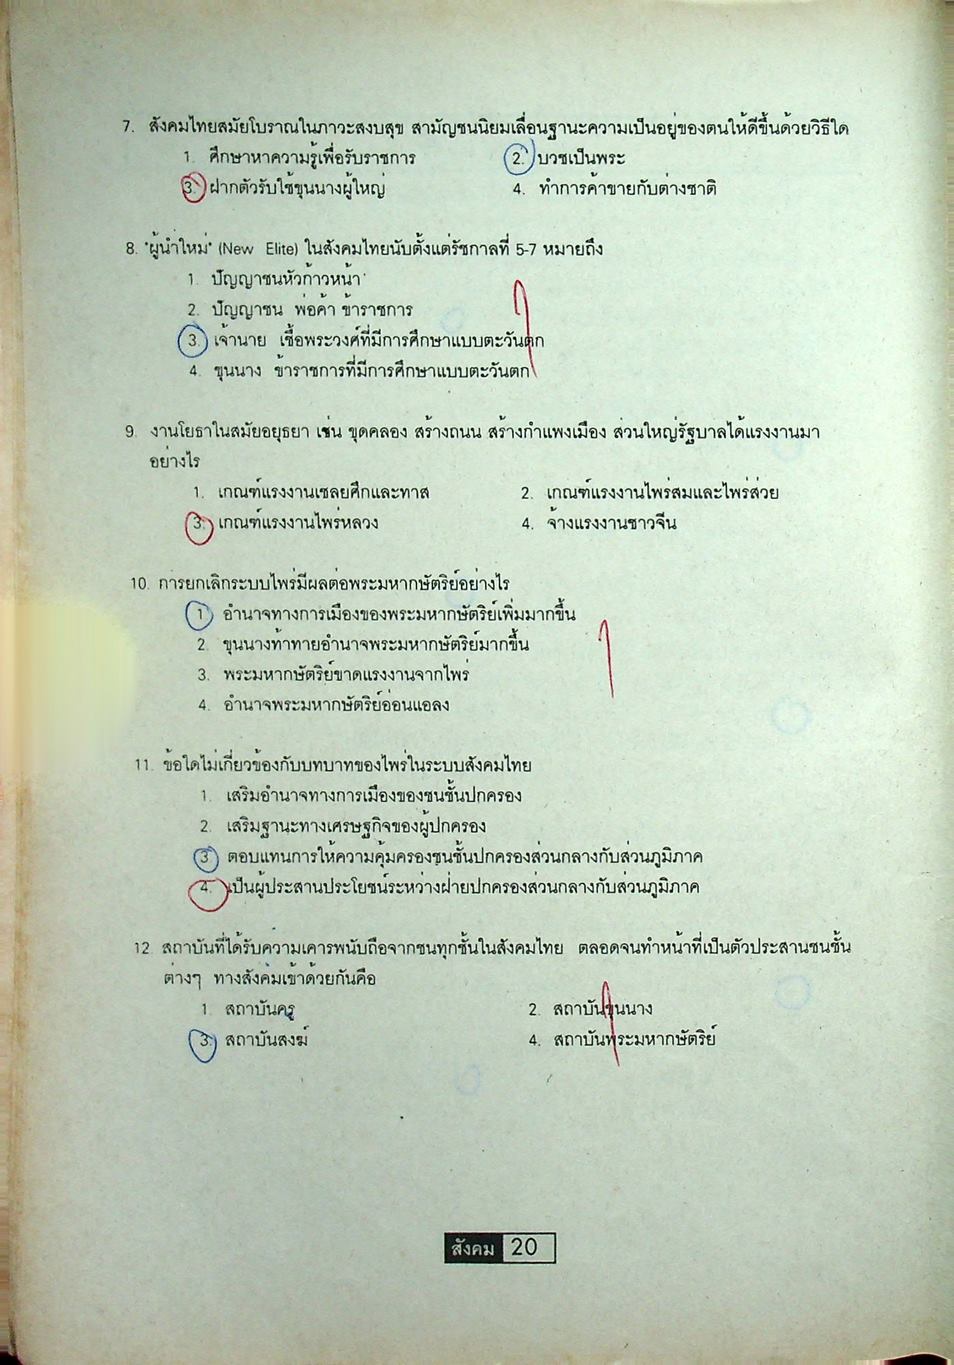 7. สังคมไทยสมัยโบราณในภาวะสงบสุข สามัญชนนิยมเลื่อนฐานะความเป็นอยู่ของตนให้ดีขึ้นด้วยวิธีใด
1. ศึกษาหาความรู้เพื่อรับราชการ 2. บวชเป็นพระ
3. ฝากตัวรับใช้ขุนนางผู้ใหญ่ 4. ทำการค้าขายกับต่างชาติ
8. "ผู้นำใหม่" (New Elite) ในสังคมไทยนับตั้งแต่รัชกาลที่ 5-7 หมายถึง
1. ปัญญาชนหัวก้าวหน้า
2. ปัญญาชน พ่อค้า ข้าราชการ
3. เจ้านาย เชื้อพระวงศ์ที่มีการศึกษาแบบตะวันตก
4. ขุนนาง ข้าราชการที่มีการศึกษาแบบตะวันตก
9. งานโยธาในสมัยอยุธยา เช่น ขุดคลอง สร้างถนน สร้างกำแพงเมือง ส่วนใหญ่รัฐบาลได้แรงงานมา
อย่างไร
1. เกณฑ์แรงงานเชลยศึกและทาส 2. เกณฑ์แรงงานไพร่สมและไพร่ส่วย
3. เกณฑ์แรงงานไพร่หลวง 4. จ้างแรงงานชาวจีน
10. การยกเลิกระบบไพร่มีผลต่อพระมหากษัตริย์อย่างไร
1. อำนาจทางการเมืองของพระมหากษัตริย์เพิ่มมากขึ้น
2. ขุนนางท้าทายอำนาจพระมหากษัตริย์มากขึ้น
3. พระมหากษัตริย์ขาดแรงงานจากไพร่
4. อำนาจพระมหากษัตริย์อ่อนแอลง
11. ข้อใดไม่เกี่ยวข้องกับบทบาทของไพร่ในระบบสังคมไทย
1. เสริมอำนาจทางการเมืองของชนชั้นปกครอง
2. เสริมฐานะทางเศรษฐกิจของผู้ปกครอง
3. ตอบแทนการให้ความคุ้มครองชนชั้นปกครองส่วนกลางกับส่วนภูมิภาค
4. เป็นผู้ประสานประโยชน์ระหว่างฝ่ายปกครองส่วนกลางกับส่วนภูมิภาค
12. สถาบันที่ได้รับความเคารพนับถือจากชนทุกชั้นในสังคมไทย ตลอดจนทำหน้าที่เป็นตัวประสานชนชั้น
ต่างๆ ทางสังคมเข้าด้วยกันคือ
1. สถาบันครู 2. สถาบันขุนนาง
3. สถาบันสงฆ์ 4. สถาบันพระมหากษัตริย์
สังคม 20